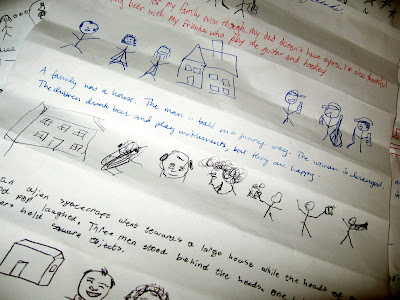 for my family even though my dad doesn't have eyes. I'm also beautiful
ing beer with my friends who play the guitar and hockey
A family has a house. The man is bald in a funny way. The woman is deranged.
The children drink beer and play instruments, but they are happy.
an alien spacecraft went towards a large house while the heads of
nd pop laughed. Three men stood behind the heads. one
ers held square objects.